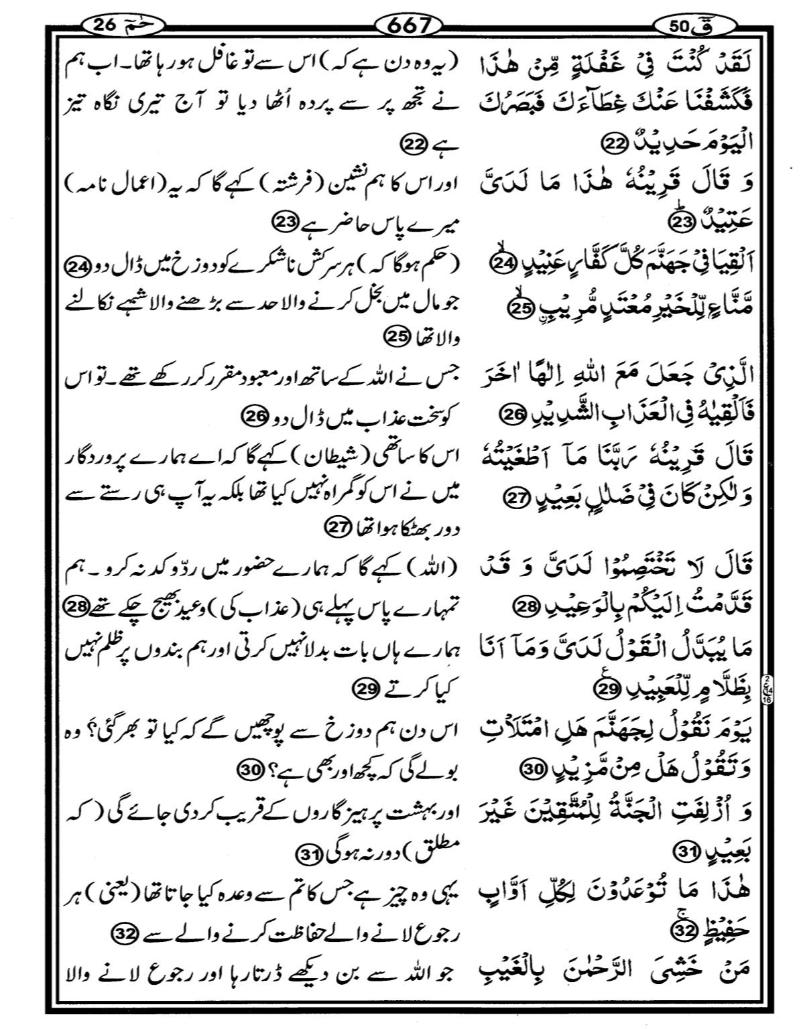 قٓ 50
667
حٰمٓ 26
لَقَدْ كُنْتَ فِىْ غَفْلَةٍ مِّنْ هٰذَا
فَكَشَفْنَا عَنْكَ غِطَآءَكَ فَبَصَرُكَ
الْيَوْمَ حَدِيْدٌ 22
وَ قَالَ قَرِيْنُهٗ هٰذَا مَا لَدَىَّ
عَتِيْدٌ ؕ 23
اَلْقِيَا فِىْ جَهَنَّمَ كُلَّ كَفَّارٍ عَنِيْدٍ ۙ 24
مَّنَّاعٍ لِّلْخَيْرِ مُعْتَدٍ مُّرِيْبِۙ 25
الَّذِىْ جَعَلَ مَعَ اللّٰهِ اِلٰهًا اٰخَرَ
فَاَلْقِيٰهُ فِى الْعَذَابِ الشَّدِيْدِ 26
قَالَ قَرِيْنُهٗ رَبَّنَا مَاۤ اَطْغَيْتُهٗ
وَلٰكِنْ كَانَ فِىْ ضَلٰلٍۭ بَعِيْدٍ 27
قَالَ لَا تَخْتَصِمُوْا لَدَىَّ وَ قَدْ
قَدَّمْتُ اِلَيْكُمْ بِالْوَعِيْدِ 28
مَا يُبَدَّلُ الْقَوْلُ لَدَىَّ وَمَاۤ اَنَا
بِظَلَّامٍ لِّلْعَبِيْدِ ع 29
يَوْمَ نَقُوْلُ لِجَهَنَّمَ هَلِ امْتَلَاْتِ
وَتَقُوْلُ هَلْ مِنْ مَّزِيْدٍ 30
وَ اُزْلِفَتِ الْجَنَّةُ لِلْمُتَّقِيْنَ غَيْرَ
بَعِيْدٍ 31
هٰذَا مَا تُوْعَدُوْنَ لِكُلِّ اَوَّابٍ
حَفِيْظٍ ۚ 32
مَنْ خَشِىَ الرَّحْمٰنَ بِالْغَيْبِ
(یہ وہ دن ہے کہ) اس سے تو غافل ہو رہا تھا۔ اب ہم
نے تجھ پر سے پردہ اُٹھا دیا تو آج تیری نگاہ تیز
ہے 22
اور اس کا ہم نشین (فرشتہ) کہے گا کہ یہ (اعمال نامہ)
میرے پاس حاضر ہے 23
(حکم ہوگا کہ) ہر سرکش ناشکرے کو دوزخ میں ڈال دو 24
جو مال میں بخل کرنے والا حد سے بڑھنے والا شبہے نکالنے
والا تھا 25
جس نے اللہ کے ساتھ اور معبود مقرر کر رکھے تھے۔ تو اس
کو سخت عذاب میں ڈال دو 26
اس کا ساتھی (شیطان) کہے گا کہ اے ہمارے پروردگار
میں نے اس کو گمراہ نہیں کیا تھا بلکہ یہ آپ ہی رستے سے
دور بھٹکا ہوا تھا 27
(اللہ) کہے گا کہ ہمارے حضور میں ردّ و کد نہ کرو ۔ ہم
تمہارے پاس پہلے ہی (عذاب کی) وعید بھیج چکے تھے 28
ہمارے ہاں بات بدلا نہیں کرتی اور ہم بندوں پر ظلم نہیں
کیا کرتے 29
اس دن ہم دوزخ سے پوچھیں گے کہ کیا تو بھر گئی؟ وہ
بولے گی کہ کچھ اور بھی ہے؟ 30
اور بہشت پرہیز گاروں کے قریب کر دی جائے گی (کہ
مطلق) دور نہ ہوگی 31
یہی وہ چیز ہے جس کا تم سے وعدہ کیا جاتا تھا (یعنی) ہر
رجوع لانے والے حفاظت کرنے والے سے 32
جو اللہ سے بن دیکھے ڈرتا رہا اور رجوع لانے والا